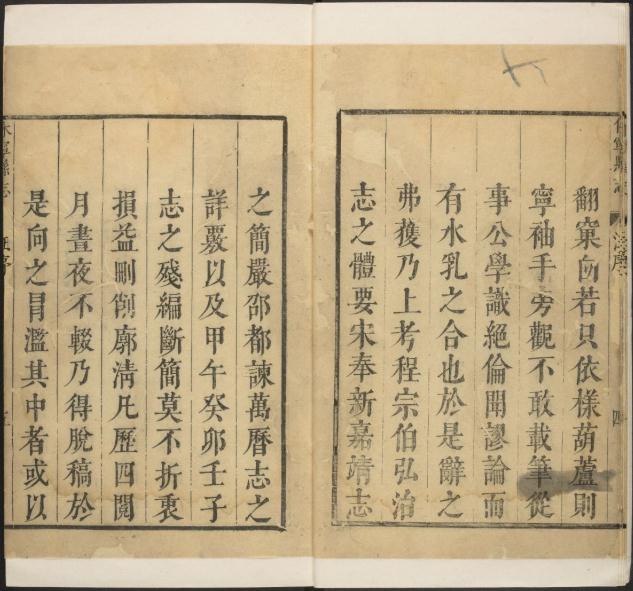 翻窠臼若只依樣葫蘆則
寧袖手旁觀不敢載筆從
事公學識絕倫聞謬論而
有水乳之合也於是辭之
弗獲乃上考程宗伯弘治
志之體要宋奉新嘉靖志
之簡嚴邵都諫萬曆志之
詳覈以及甲午癸卯壬子
志之殘編斷簡莫不折衷
損益刪創廓淸凡歷四閱
月晝夜不輟乃得脫稿於
是向之冒濫其中者或以
休寧縣志
汪序
四
休寧縣志
汪序
五